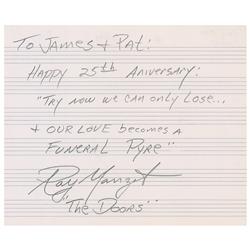 To James + Pat:
Happy 25th Aniversary:
"Try now we can only lose..
+ our love becomes a
Funeral Pyre"
Ray Manzarek
"The Doors"